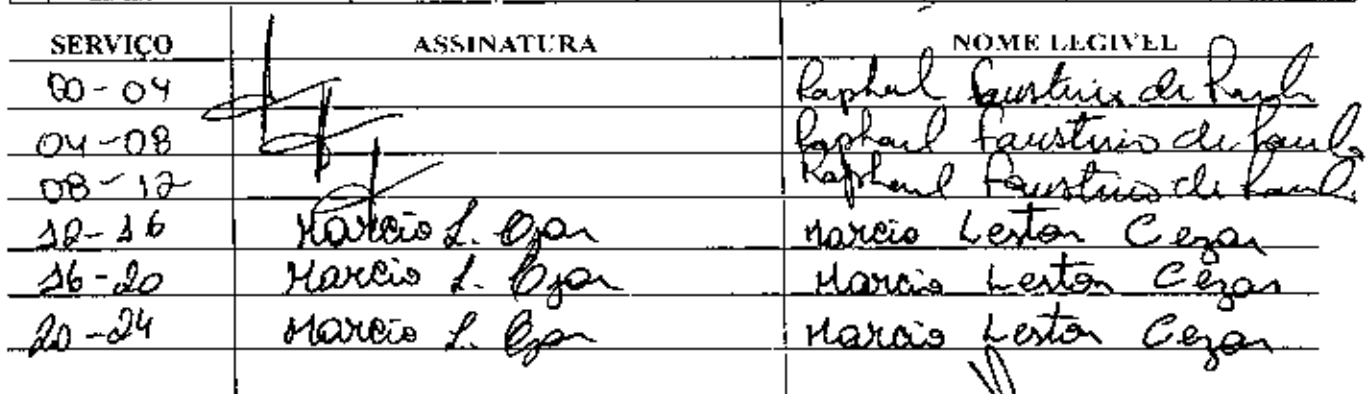 SERVIÇO ASSINATURA NOME LEGIVEL
00-04 Raphael Faustino de Paula
04-08 Raphael Faustino de Paula
08-12 Raphael Faustino de Paula
12-16 Marcio L. Cezar Marcio Leston Cezar
16-20 Marcio L. Cezar Marcio Leston Cezar
20-24 Marcio L. Cezar Marcio Leston Cezar